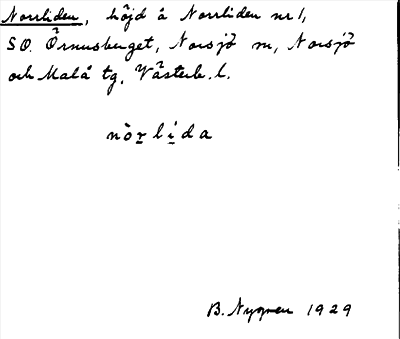 Norrliden, höjd å Norrliden nr 1,
SO. Örnusberget, Norsjö sn, Norsjö
och Malå tg. Västerb. l.
nòr̲lí̲da
B. Nygren 1929